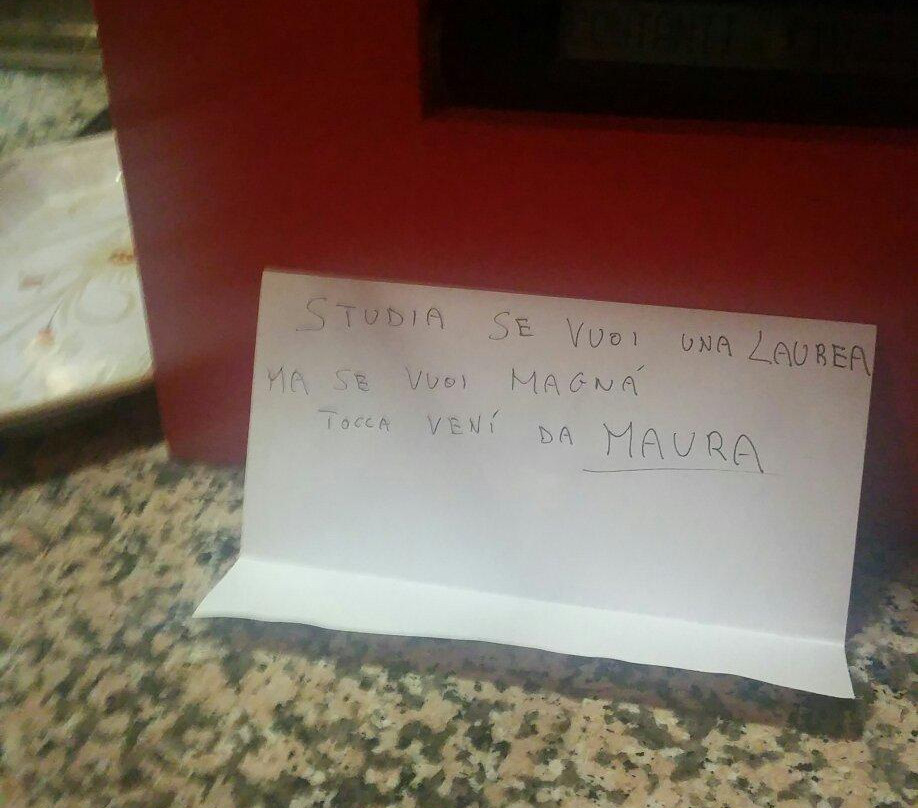 STUDIA SE VUOI UNA LAUREA
MA SE VUOI MAGNÁ
TOCCA VENÍ DA MAURA